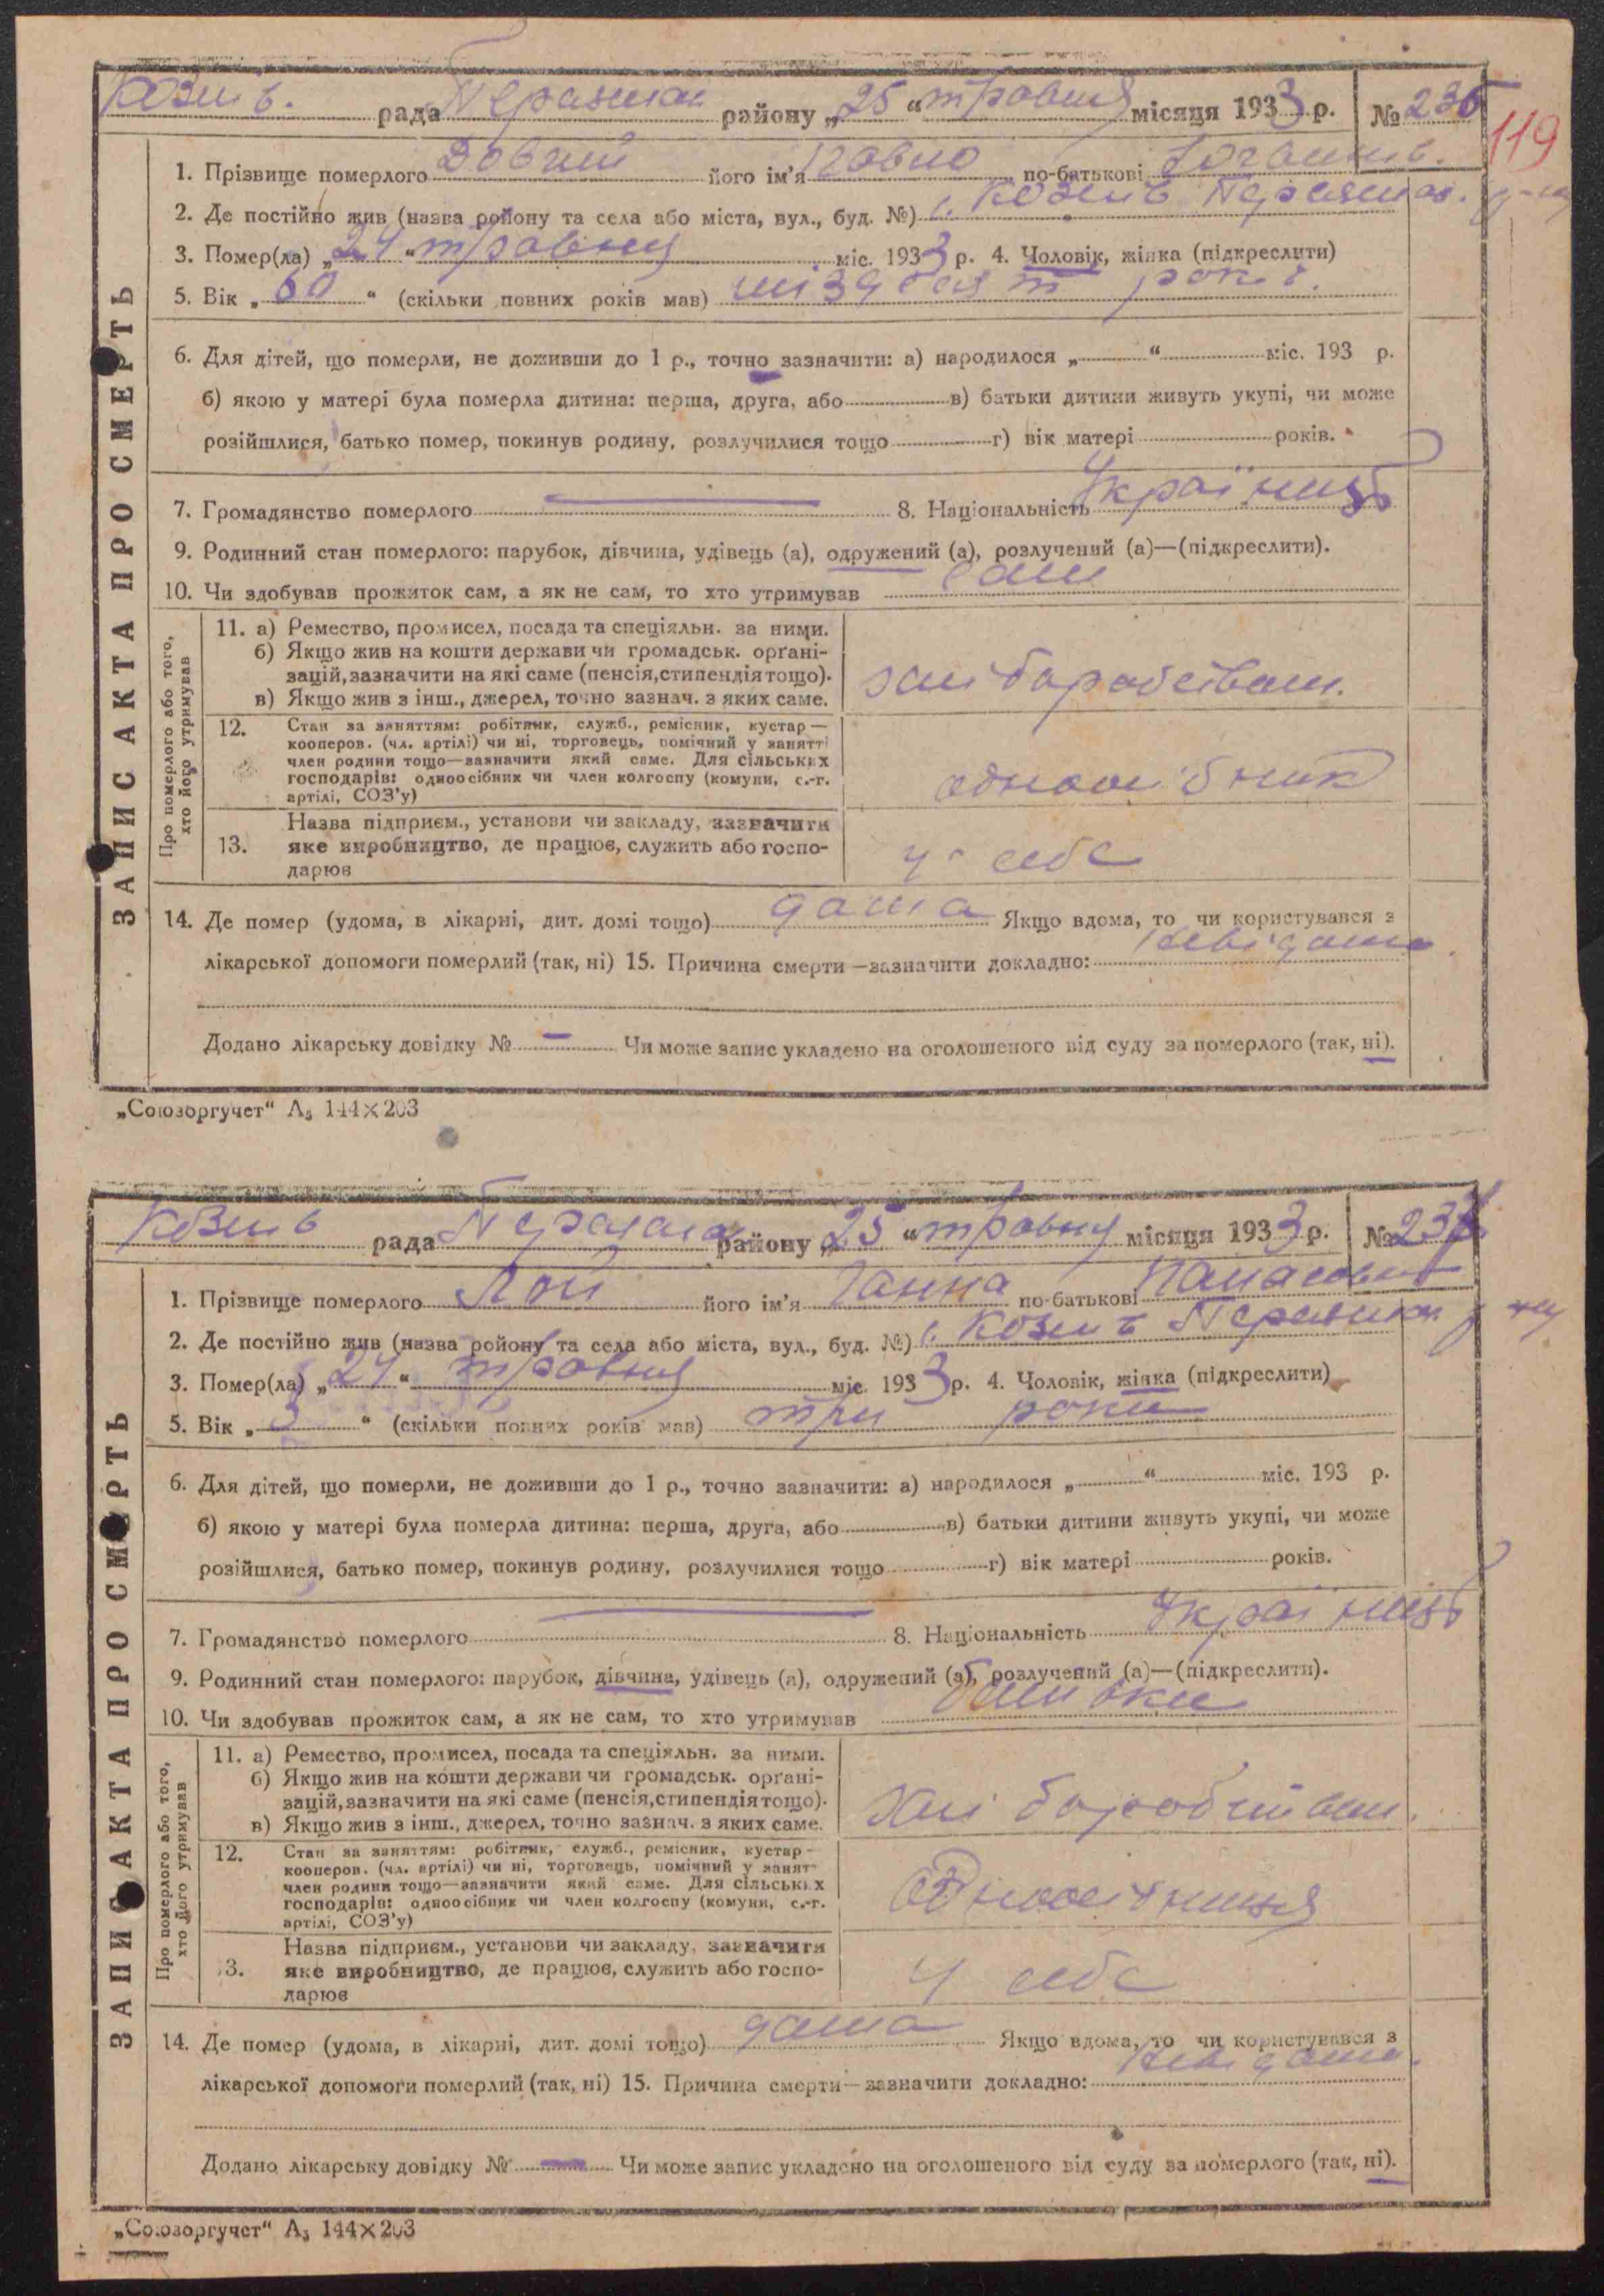 Козин ь. рада Переяслав району „25“ травня місяця 1933 р. № 236
119
1. Прізвище померлого Довгий його ім'я по-батькові
2. Де постійно жив (назва району та села або міста, вул., буд. №) с. Козин
3. Помер(ла) „24“ травня міс. 1933 р. 4. Чоловік, жінка (підкреслити)
5. Вік „60“ (скільки повних років мав) шіздесят років.
6. Для дітей, що померли, не доживши до 1 р., точно зазначити: а) народилося „ “ міс. 193 р.
б) якою у матері була померла дитина: перша, друга, або в) батьки дитини живуть укупі, чи може
розійшлися, батько помер, покинув родину, розлучилися тощо г) вік матері років.
7. Громадянство померлого — 8. Національність Українець
9. Родинний стан померлого: парубок, дівчина, удівець (а), одружений (а), розлучений (а)—(підкреслити).
10. Чи здобував прожиток сам, а як не сам, то хто утримував сам
11. а) Ремество, промисел, посада та спеціяльн. за ними.
б) Якщо жив на кошти держави чи громадськ. орґані-
зацій, зазначити на які саме (пенсія, стипендія тощо).
в) Якщо жив з інш., джерел, точно зазнач. з яких саме.
12. Стан за заняттям: робітник, служб., ремісник, кустар—
кооперов. (чл. артілі) чи ні, торговець, помічний у занятті
член родини тощо—зазначити який саме. Для сільських
господарів: одноосібник чи член колгоспу (комуни, с.-г.
артілі, СОЗ'у)
одноосібник
13. Назва підприєм., установи чи закладу, зазначити
яке виробництво, де працює, служить або госпо-
дарює
у себе
Про померлого або того,
хто його утримував
14. Де помер (удома, в лікарні, дит. домі тощо) дома Якщо вдома, то чи користувався з
лікарської допомоги померлий (так, ні) 15. Причина смерти—зазначити докладно: невідома.
Додано лікарську довідку № — Чи може запис укладено на оголошеного від суду за померлого (так, ні).
ЗАПИС АКТА ПРО СМЕРТЬ
„Союзоргучет“ А₅ 144×203
Козин ь рада району „25“ травня місяця 1933 р. № 237
1. Прізвище померлого Лой його ім'я Ганна по-батькові Панасовна
2. Де постійно жив (назва району та села або міста, вул., буд. №) с. Козин
3. Помер(ла) „24“ травня міс. 1933 р. 4. Чоловік, жінка (підкреслити)
5. Вік „3“ (скільки повних років мав) три роки
6. Для дітей, що померли, не доживши до 1 р., точно зазначити: а) народилося „ “ міс. 193 р.
б) якою у матері була померла дитина: перша, друга, або в) батьки дитини живуть укупі, чи може
розійшлися, батько помер, покинув родину, розлучилися тощо г) вік матері років.
7. Громадянство померлого — 8. Національність
9. Родинний стан померлого: парубок, дівчина, удівець (а), одружений (а), розлучений (а)—(підкреслити).
10. Чи здобував прожиток сам, а як не сам, то хто утримував батьки
11. а) Ремество, промисел, посада та спеціяльн. за ними.
б) Якщо жив на кошти держави чи громадськ. орґані-
зацій, зазначити на які саме (пенсія, стипендія тощо).
в) Якщо жив з інш., джерел, точно зазнач. з яких саме.
12. Стан за заняттям: робітник, служб., ремісник, кустар—
кооперов. (чл. артілі) чи ні, торговець, помічний у занятті
член родини тощо—зазначити який саме. Для сільських
господарів: одноосібник чи член колгоспу (комуни, с.-г.
артілі, СОЗ'у)
13. Назва підприєм., установи чи закладу, зазначити
яке виробництво, де працює, служить або госпо-
дарює
у себе
Про померлого або того,
хто його утримував
14. Де помер (удома, в лікарні, дит. домі тощо) дома Якщо вдома, то чи користувався з
лікарської допомоги померлий (так, ні) 15. Причина смерти—зазначити докладно: невідома.
Додано лікарську довідку № — Чи може запис укладено на оголошеного від суду за померлого (так, ні).
ЗАПИС АКТА ПРО СМЕРТЬ
„Союзоргучет“ А₅ 144×203